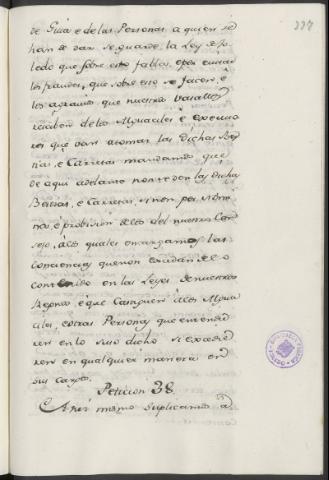 337
de Guia e de las Personas a quien se
han de dar se guarde la Ley de To-
ledo que sobre esto fabla, e por evitar
los fraudes, que sobre esto se facen, e
los agravios que nuestros Vasallos
reciben de los Alguaciles e Executo
res que van a tomar las dichas Bes
tias e Carretas mandamos que
de aqui adelante no se den las dichas
Bestias, e Carretas, sinon por
e provision de los del nuestro Con
sejo, a los quales encargamos las
Conciencias que non excedan de lo
contenido en las Leyes de nuestros
Reynos e que castiguen a los Algua
ciles, e otras Personas que entendie
ren en lo suso dicho si excedie
ren en qualquier manera en
sus Cargos.
Peticion 38
Otrosi mismo suplicamos a